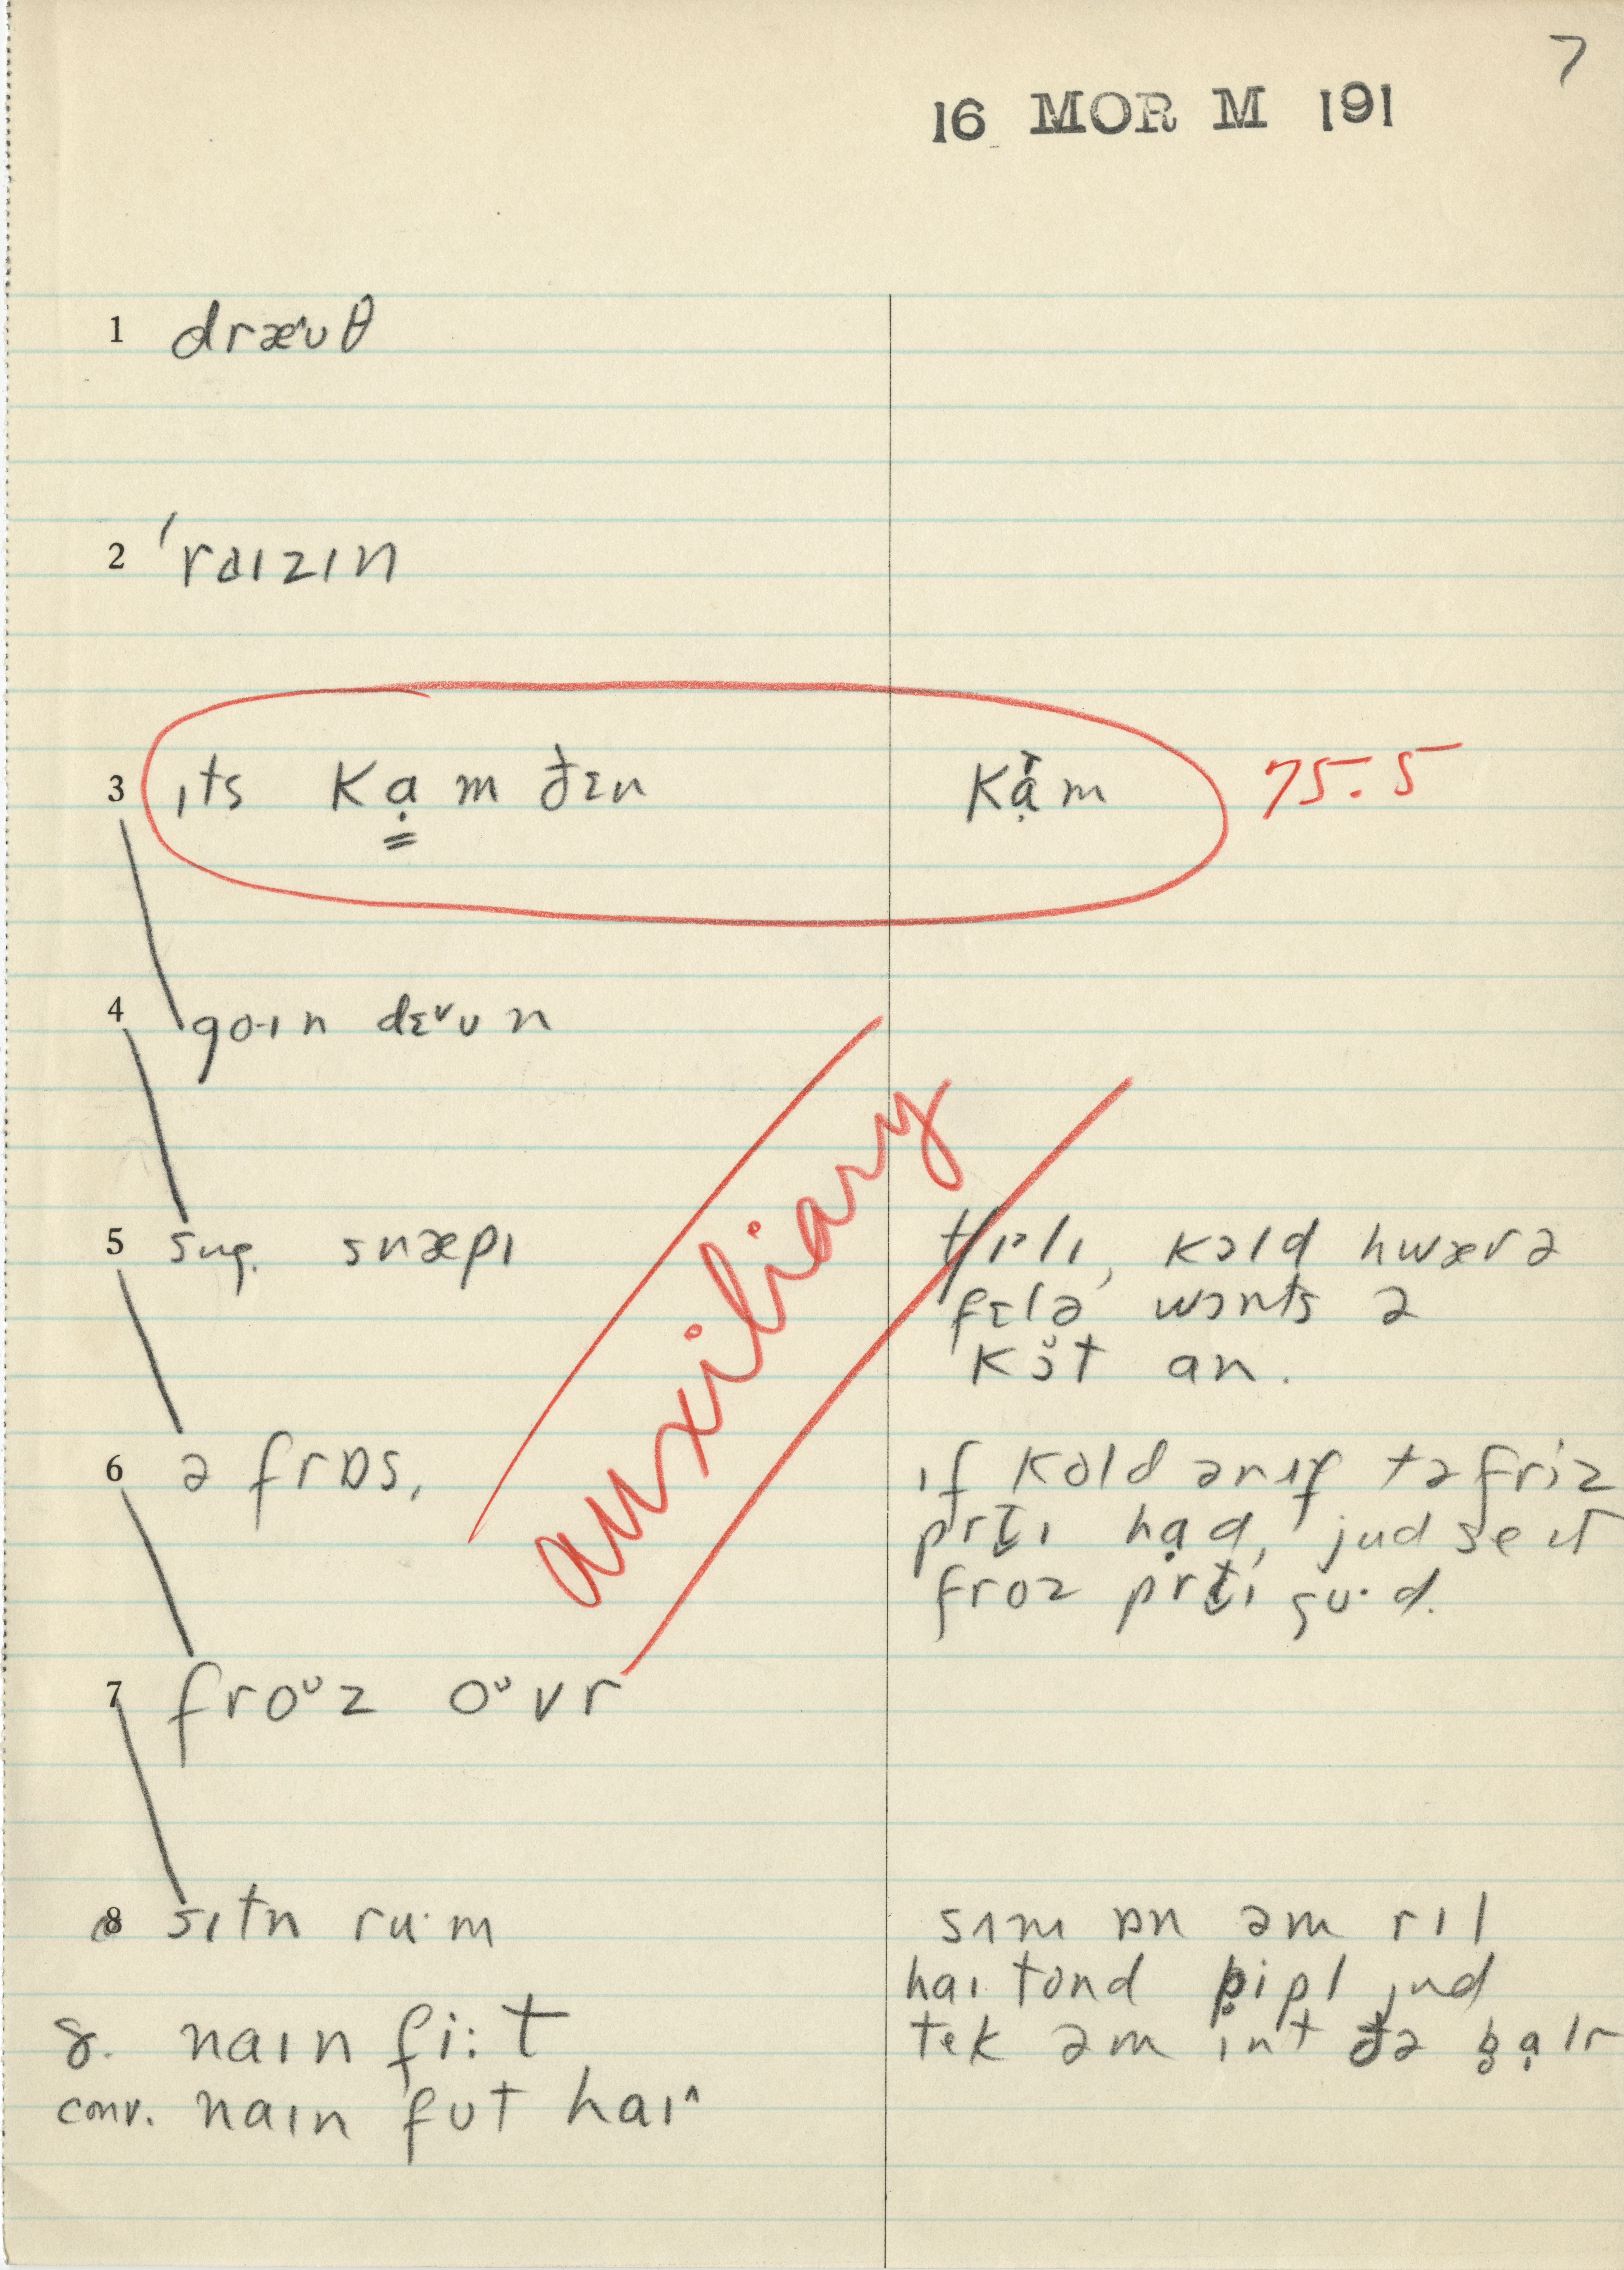 7
16 MOR M 191
1 dræᵛʊθ
2 ˈraɪzɪn
3 ɪts kạm ðɛn kạ̌m 75.5
4 goɪn dɛᵛʊn
auxiliary
5 sug. snæpɪ tʃɪlɪ, kɔld hwær ə
fɛlə wɔnts ə
kɔ̆t an.
6 ə frɒs, ɪf kold ənʌf tə friz
prtɪ hạd, jud se ɪt
froz prtɪ gu·d.
7 froᵘz oᵘvr
8 sɪtn ru·m sʌm ɒn əm rɪl
haɪ tond pipl jud
8. naɪn fi:t tek əm ɪnt ðə pạlr
conv. naɪn fʊt haɪ^